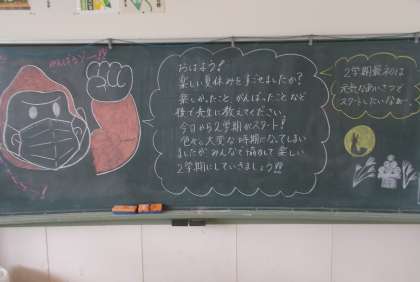 がんばるゾー!!
おはよう!
楽しい夏休みをすごせましたか?
楽しかったこと、がんばったことなど
後で先生に教えてください。
今日から2学期がスタート!
色々大変な時期になってしまい
ましたが、みんなで協力して楽しい
2学期にしていきましょう!!
2学期最初は
元気なあいさつで
スタートしたいなぁ〜